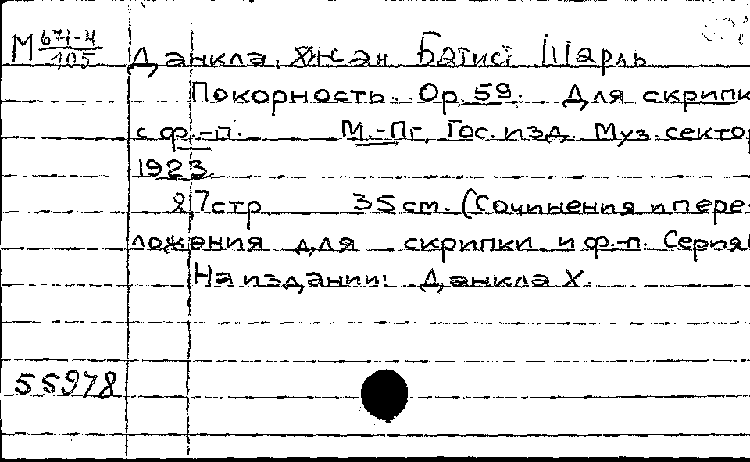 М 671-4/105 Данкла, Жан Батист Шарль
Покорность. Ор. 59. Для скрипк
с ф.-п. М.-Пг, Гос. изд. Муз. сектор
1923.
2,7 стр 35 см. (Сочинения и пере-
ложения для скрипки и ф.-п. Серия
На издании: Данкла Х.
55978